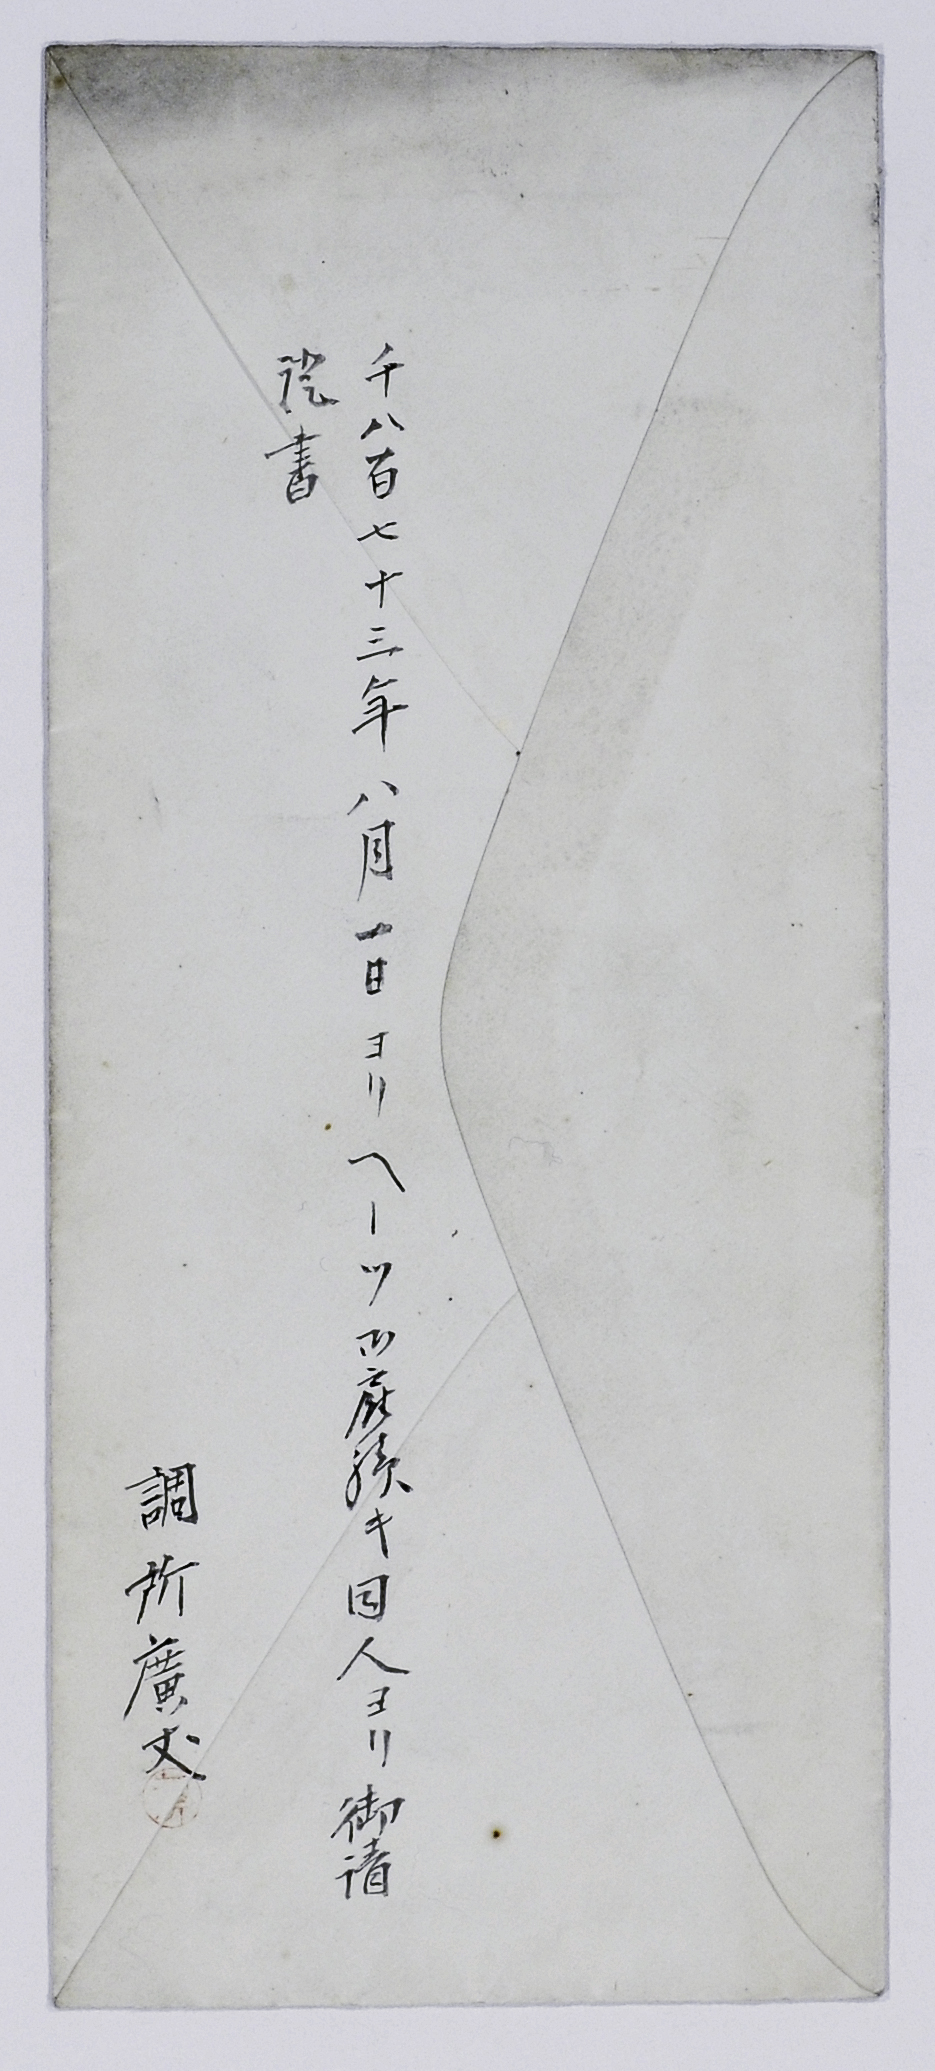 千八百七十三年八月一日ヨリヘーツ御雇續キ同人ヨリ御請
證書
調所廣丈